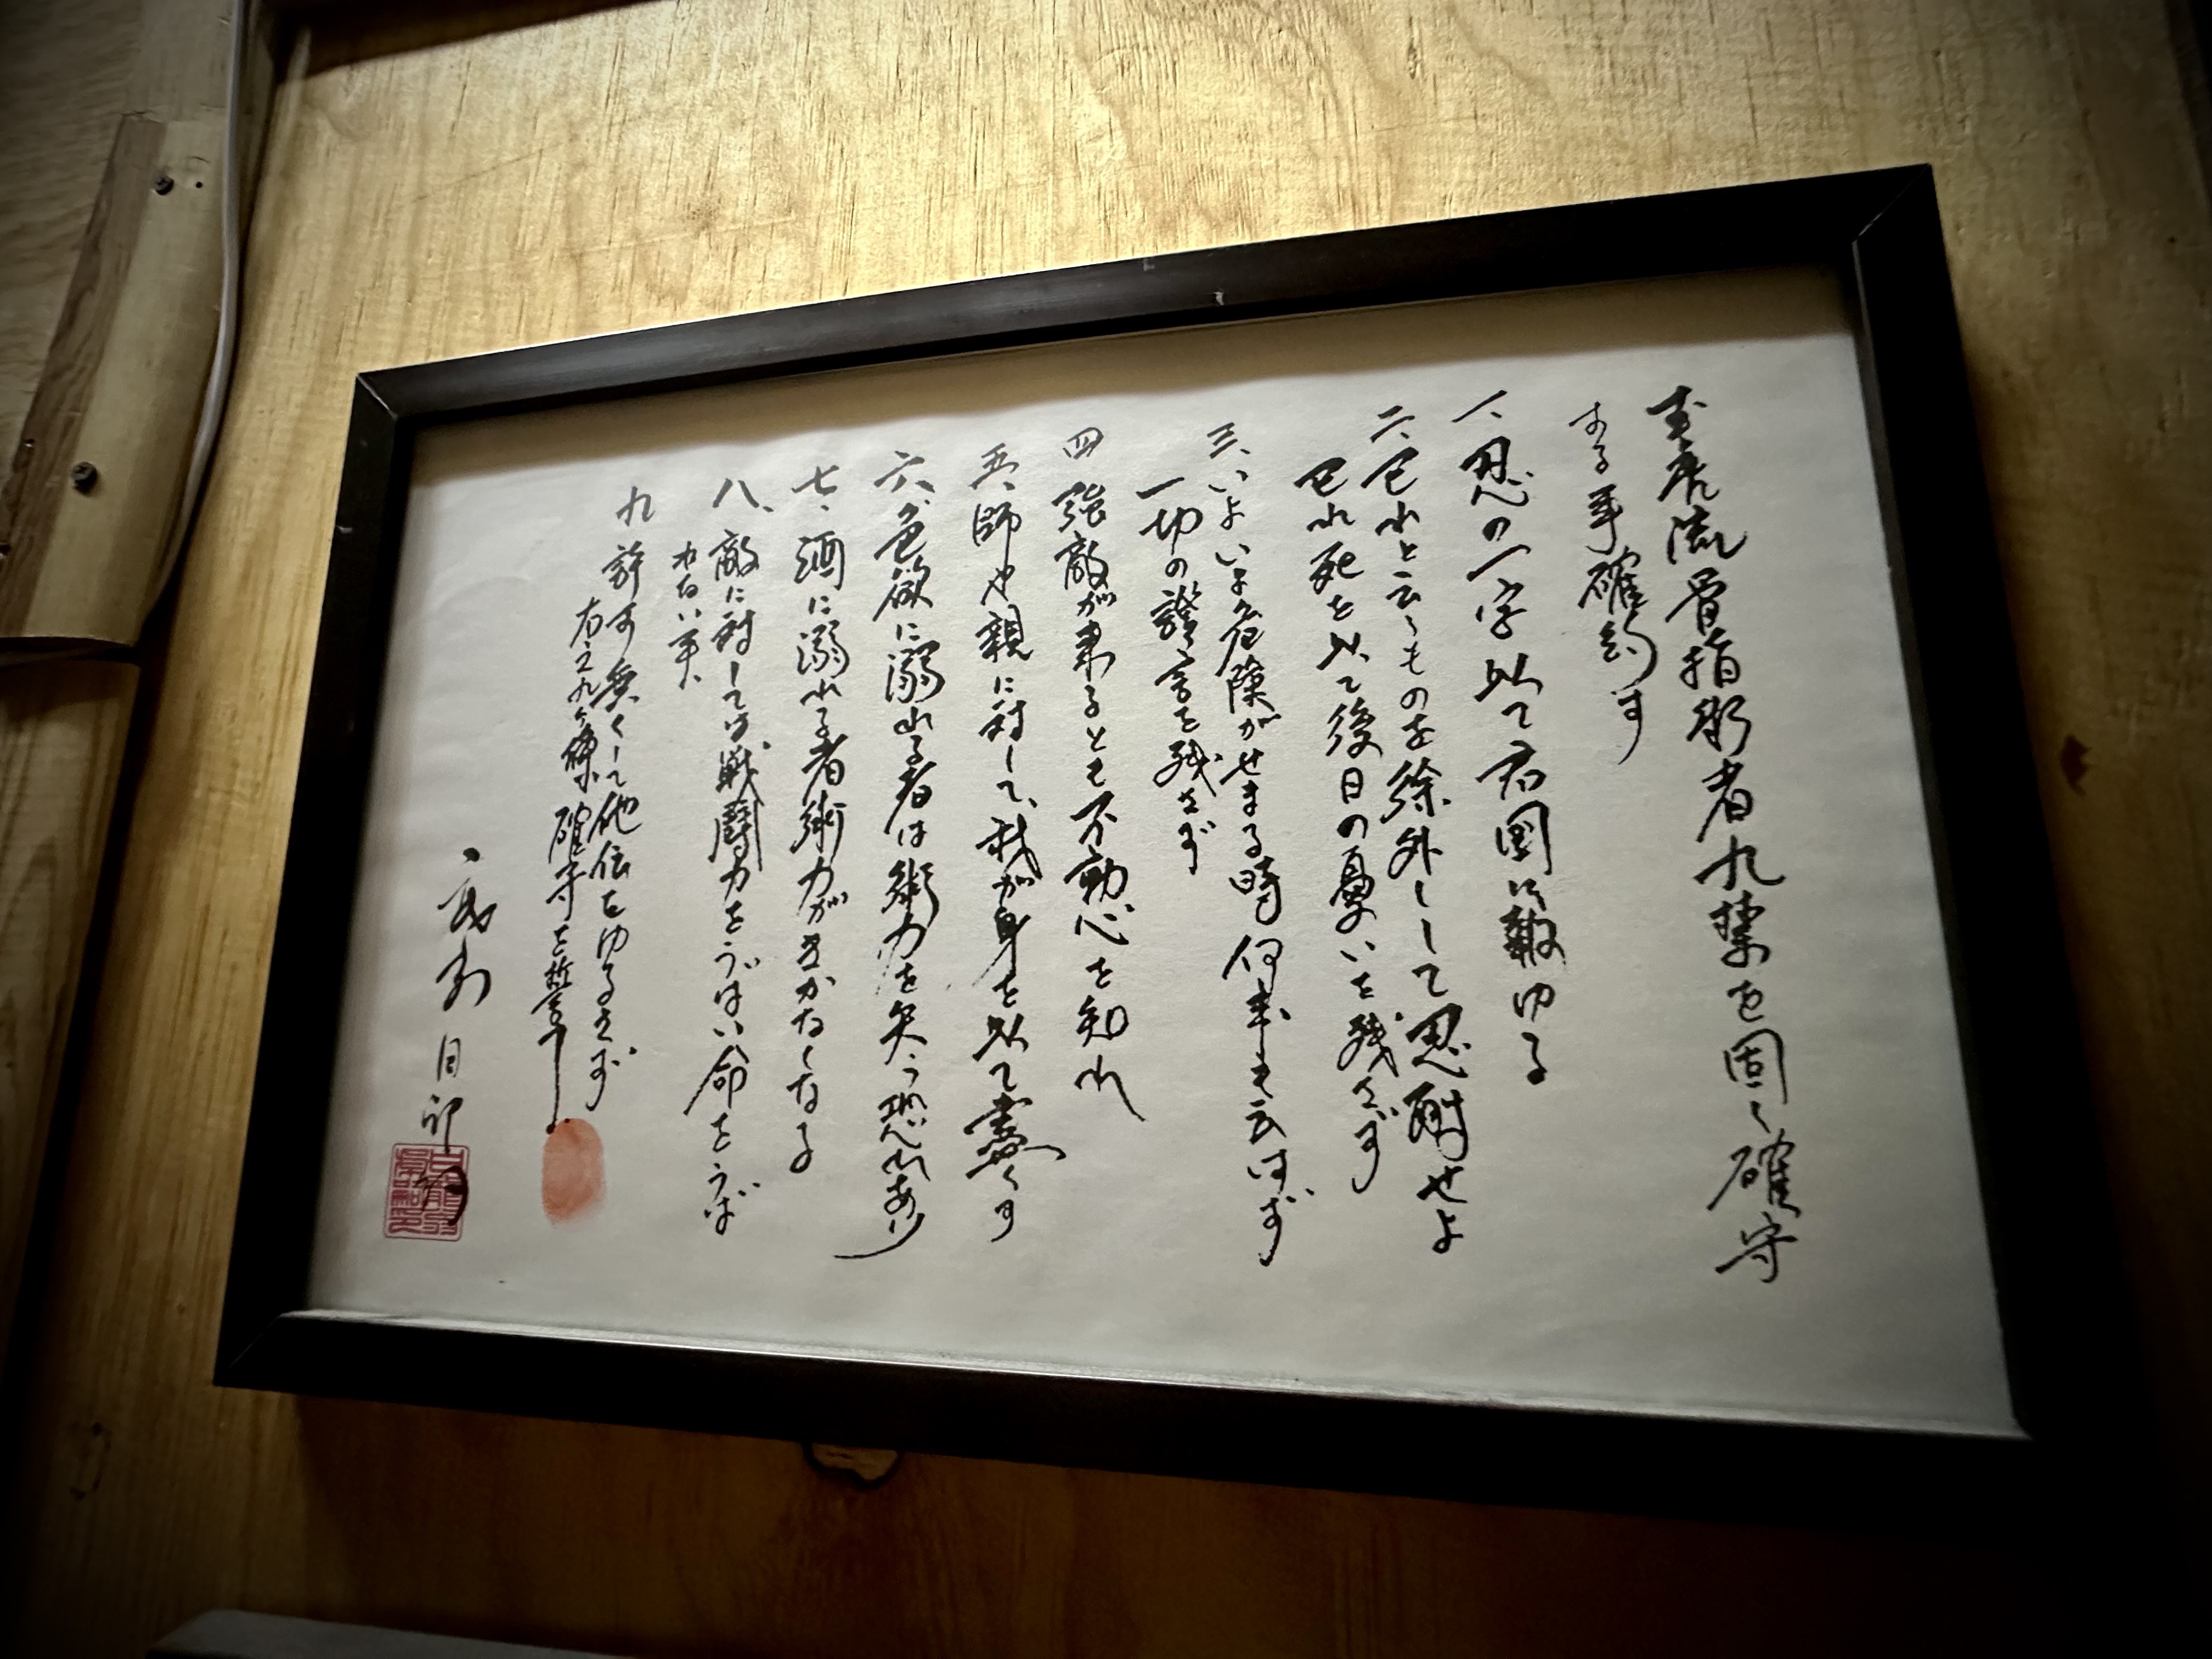 玉虎流骨指術者九禁を固く確守
する事確約す
一、忍の一字以て君国に報ゆる
二、己れと云うものを徐外しして忍耐せよ
己れ死を以て後日の憂いを残さず
三、いよいよ危険がせまる時何事も云はず
一切の證言を残さず
四 強敵が来るとも不動心を知れ
五、師や親に対して、我が身を以て盡くす
六、色欲に溺れる者は術力を失う恐れあり
七、酒に溺れる者術力がきかなくなる
八、敵に対しては戦闘力をうばい命をうば
わない事、
九 許可無くして他伝をゆるさず
右之九ヶ條確守を誓う
白龍翁